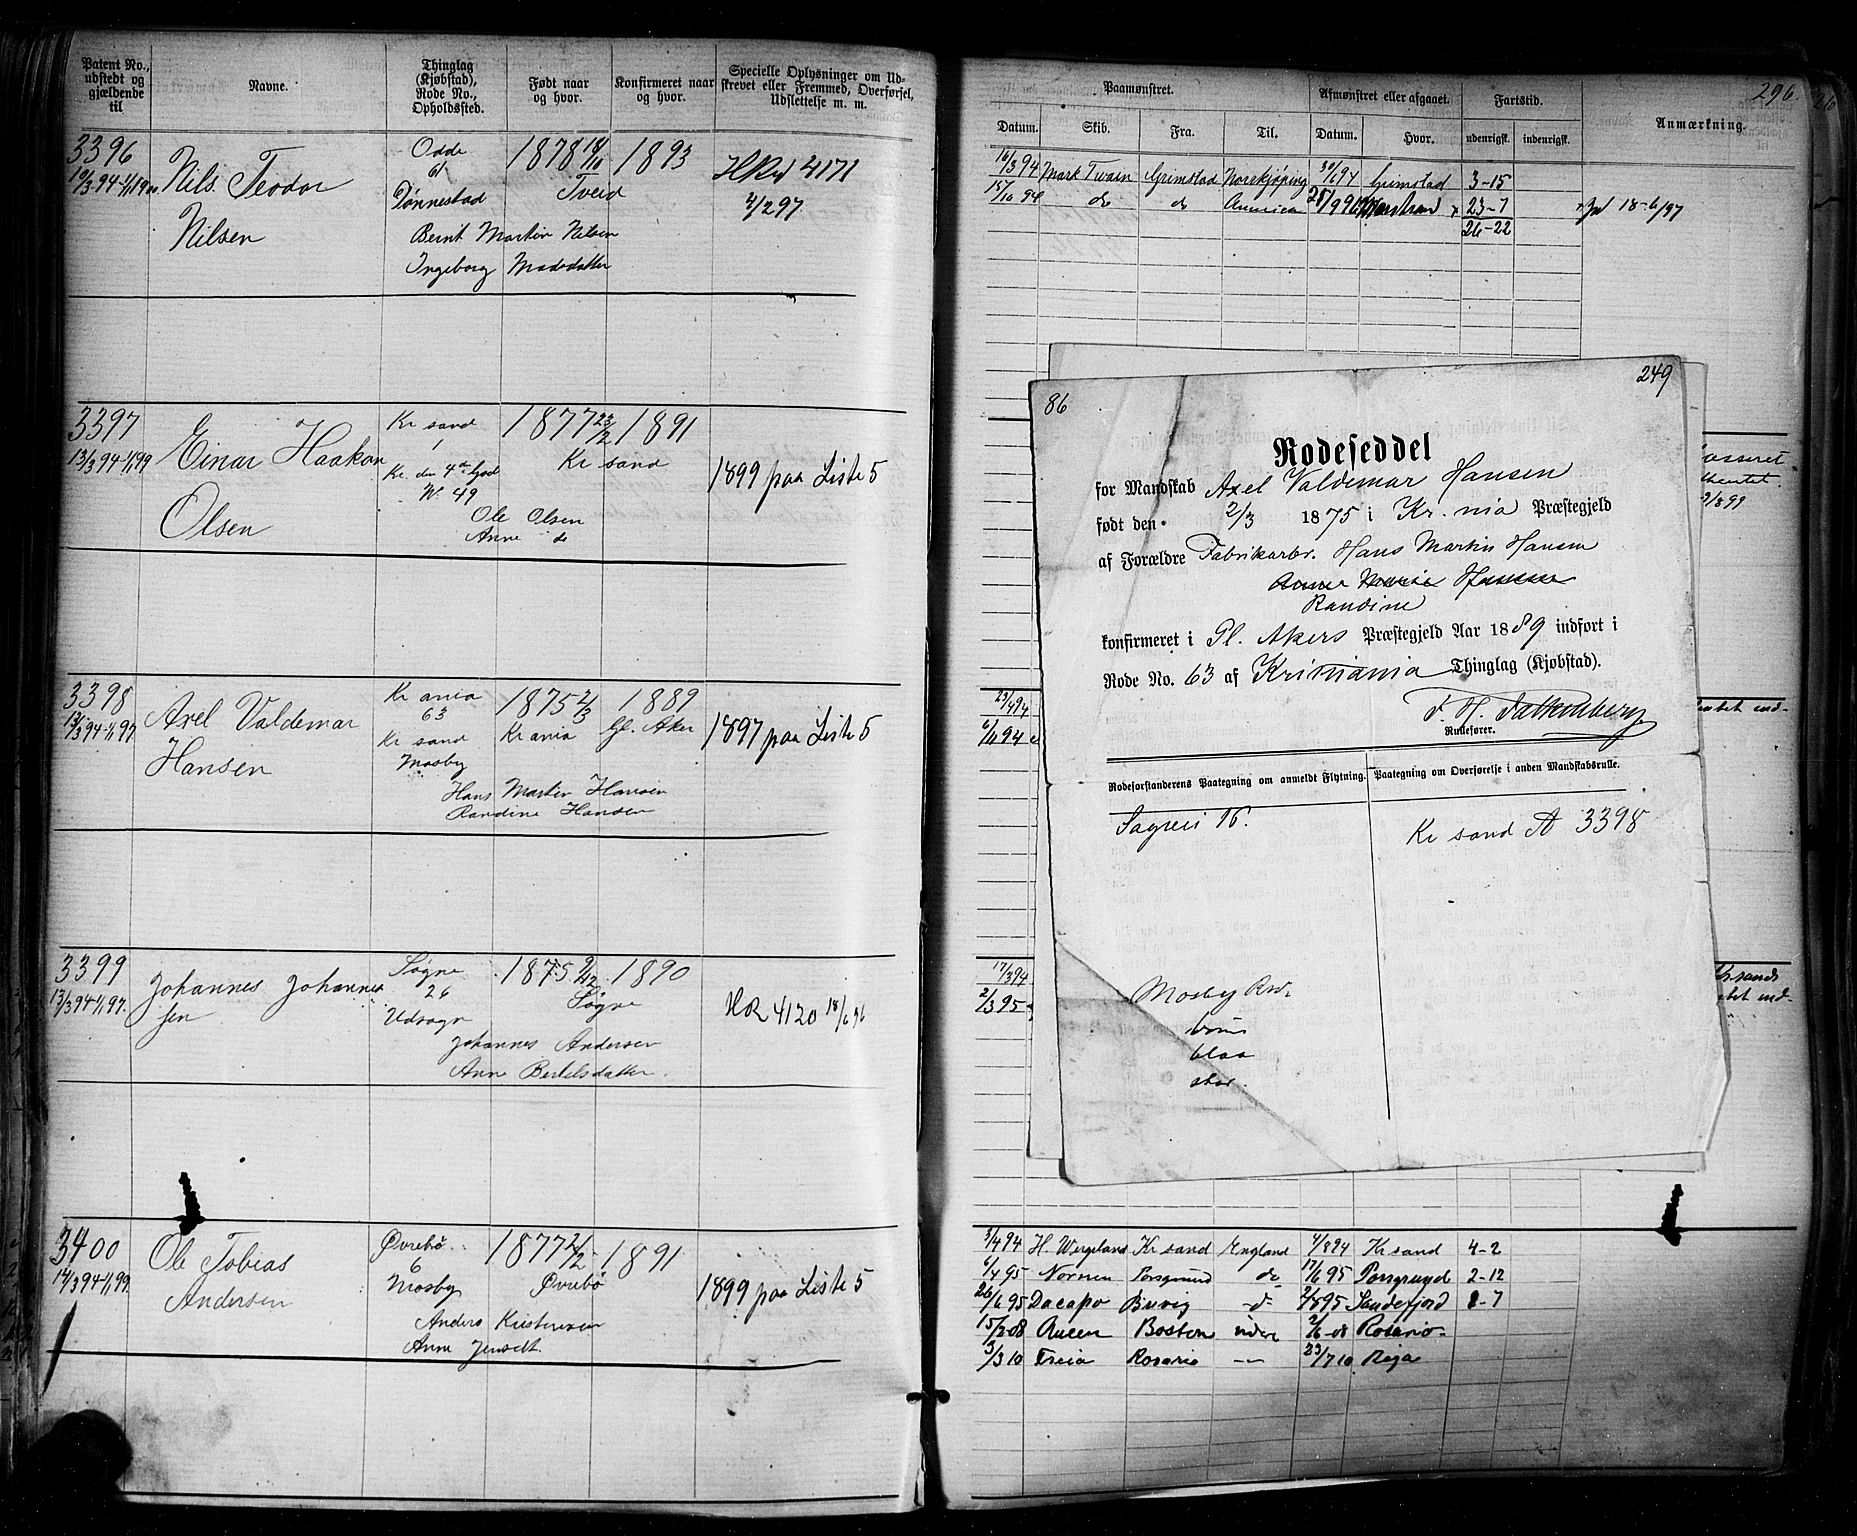 Patent No., udstedt og gjældende til
Navne.
Thinglag (Kjøbstad), Rode No., Opholdssted.
Født naar og hvor.
Konfirmeret naar og hvor.
Specielle Oplysninger om Udskrevet eller Fremmed, Overførsel, Udslettelse m. m.
3396
10/3 94-1/1 1900
Nils Teodor
Nilsen
Odde
61
Dønnestad
1878 18/11
Tveid
1893
H Rul 4171
4/2 97
Bernt Martin Nilsen
Ingeborg Madsdatter
3397
13/3 94-1/1 99
Einar Haakon
Olsen
Kr sand
1
W. 49
1877 23/2
Kr sand
1891
1899 paa Liste 5
Ole Olsen
Anne do
3398
13/3 94-1/1 97
Axel Valdemar
Hansen
Kr ania
63
Kr sand
Mosby
1875 2/3
Kr ania
1889
Gl. Aker
1897 paa Liste 5
Hans Martin Hansen
Randine Hansen
3399
13/3 94-1/1 97.
Johannes Johannes
sen
Søgne
26
Udsogn
1875 9/12
Søgne
1890
HR 4120 18/6 96
Johannes Andersen
Anne Bertelsdatter.
3400
14/3 94-1/1 99.
Ole Tobias
Andersen
Øvrebø
6
Mosby
1877 2/2
Øvrebø
1891
1899 paa Liste 5
Anders Kristensen
Anne Jensdt.
296.
Paamønstret.
Afmønstret eller afgaaet.
Fartstid.
Anmærkning.
Datum.
Skib.
Fra.
Til.
Datum.
Hvor.
udenrigsk.
indenrigsk.
16/3 94 Mark Twain Grimstad Norrkjøping 30/6 94 Grimstad 3-15
15/10 94 do do America 28/9 96 Marstrand x 23-7 x Ind 18-6/97
26-22
9/8 99
23/4 94
6/11 94
17/3 94
2/3 95
86
249
Rodeseddel
for Mandskab Axel Valdemar Hansen
født den 2/3 1875 i Kr. nia Præstegjeld
af Forældre Fabrikarbr. Hans Martin Hansen
Anne Marie Hansen
Randine
konfirmeret i Gl. Akers Præstegjeld Aar 1889 indført i
Rode No. 63 af Kristiania Thinglag (Kjøbstad).
F. H. Falkenberg
Rodefører.
Rodeforstanderens Paategning om anmeldt Flytning.
Paategning om Overførelse i anden Mandskabsrulle.
Sagvei 16.
Kr sand A 3398
Mosby
brun
blaa
stor.
3/4 94 H. Wergeland Kr sand England 4/8 94 Kr sand 4-2
6/4 95 Nornen Porsgrund do 17/6 95 Porsgrund 2-12
26/6 95 Dacapo Buvig do 2/8 95 Sandefjord 1-7
15/2 08 Queen Boston 2/6 08 Rosario
3/3 10 Freia Rosario 23/7 10 Riga